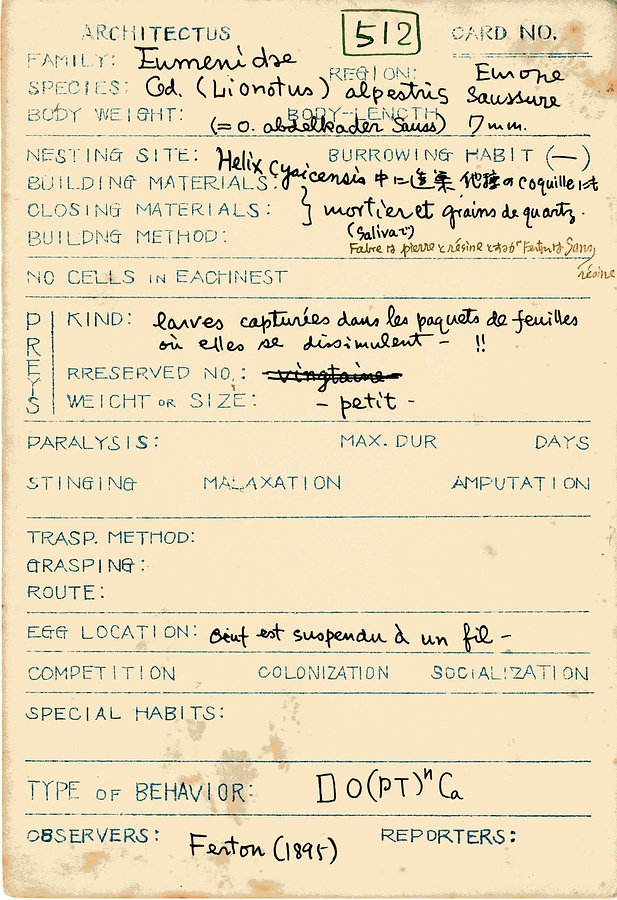 ARCHITECTUS 512 CARD NO.
FAMILY: Eumenidae
REGION: Europe
SPECIES: Od. (Lionotus) alpestris Saussure
BODY WEIGHT: BODY-LENGTH
(= O. abdelkader Sauss) 7 mm.
NESTING SITE: Helix BURROWING HABIT (—)
BUILDING MATERIALS: 中に造巣 他種のcoquilleにも
CLOSING MATERIALS: } mortier et grains de quartz.
BUILDNG METHOD: (Salivaで)
Fabre は pierre résine Ferton は Sans
résine
NO CELLS IN EACHNEST
PREYS
KIND: larves capturées dans les paquets de feuilles
où elles se dissimulent - !!
RRESERVED NO.: vingtaine
WEIGHT OR SIZE: - petit -
PARALYSIS: MAX. DUR DAYS
STINGING MALAXATION AMPUTATION
TRASP. METHOD:
GRASPING:
ROUTE:
EGG LOCATION: Oeuf est suspendu à un fil -
COMPETITION COLONIZATION SOCIALIZATION
SPECIAL HABITS:
TYPE OF BEHAVIOR: D O(PT)ⁿCa
OBSERVERS: Ferton (1895) REPORTERS: